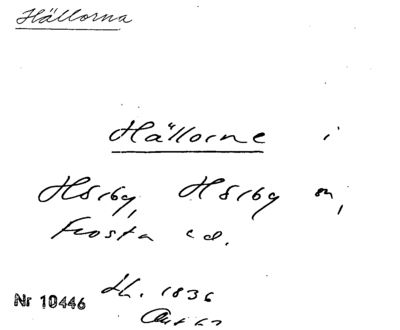 Hällorna
Hällorne i
Hörby, Hörby sn,
Frosta hd.
Nr 10446
Lh. 1836